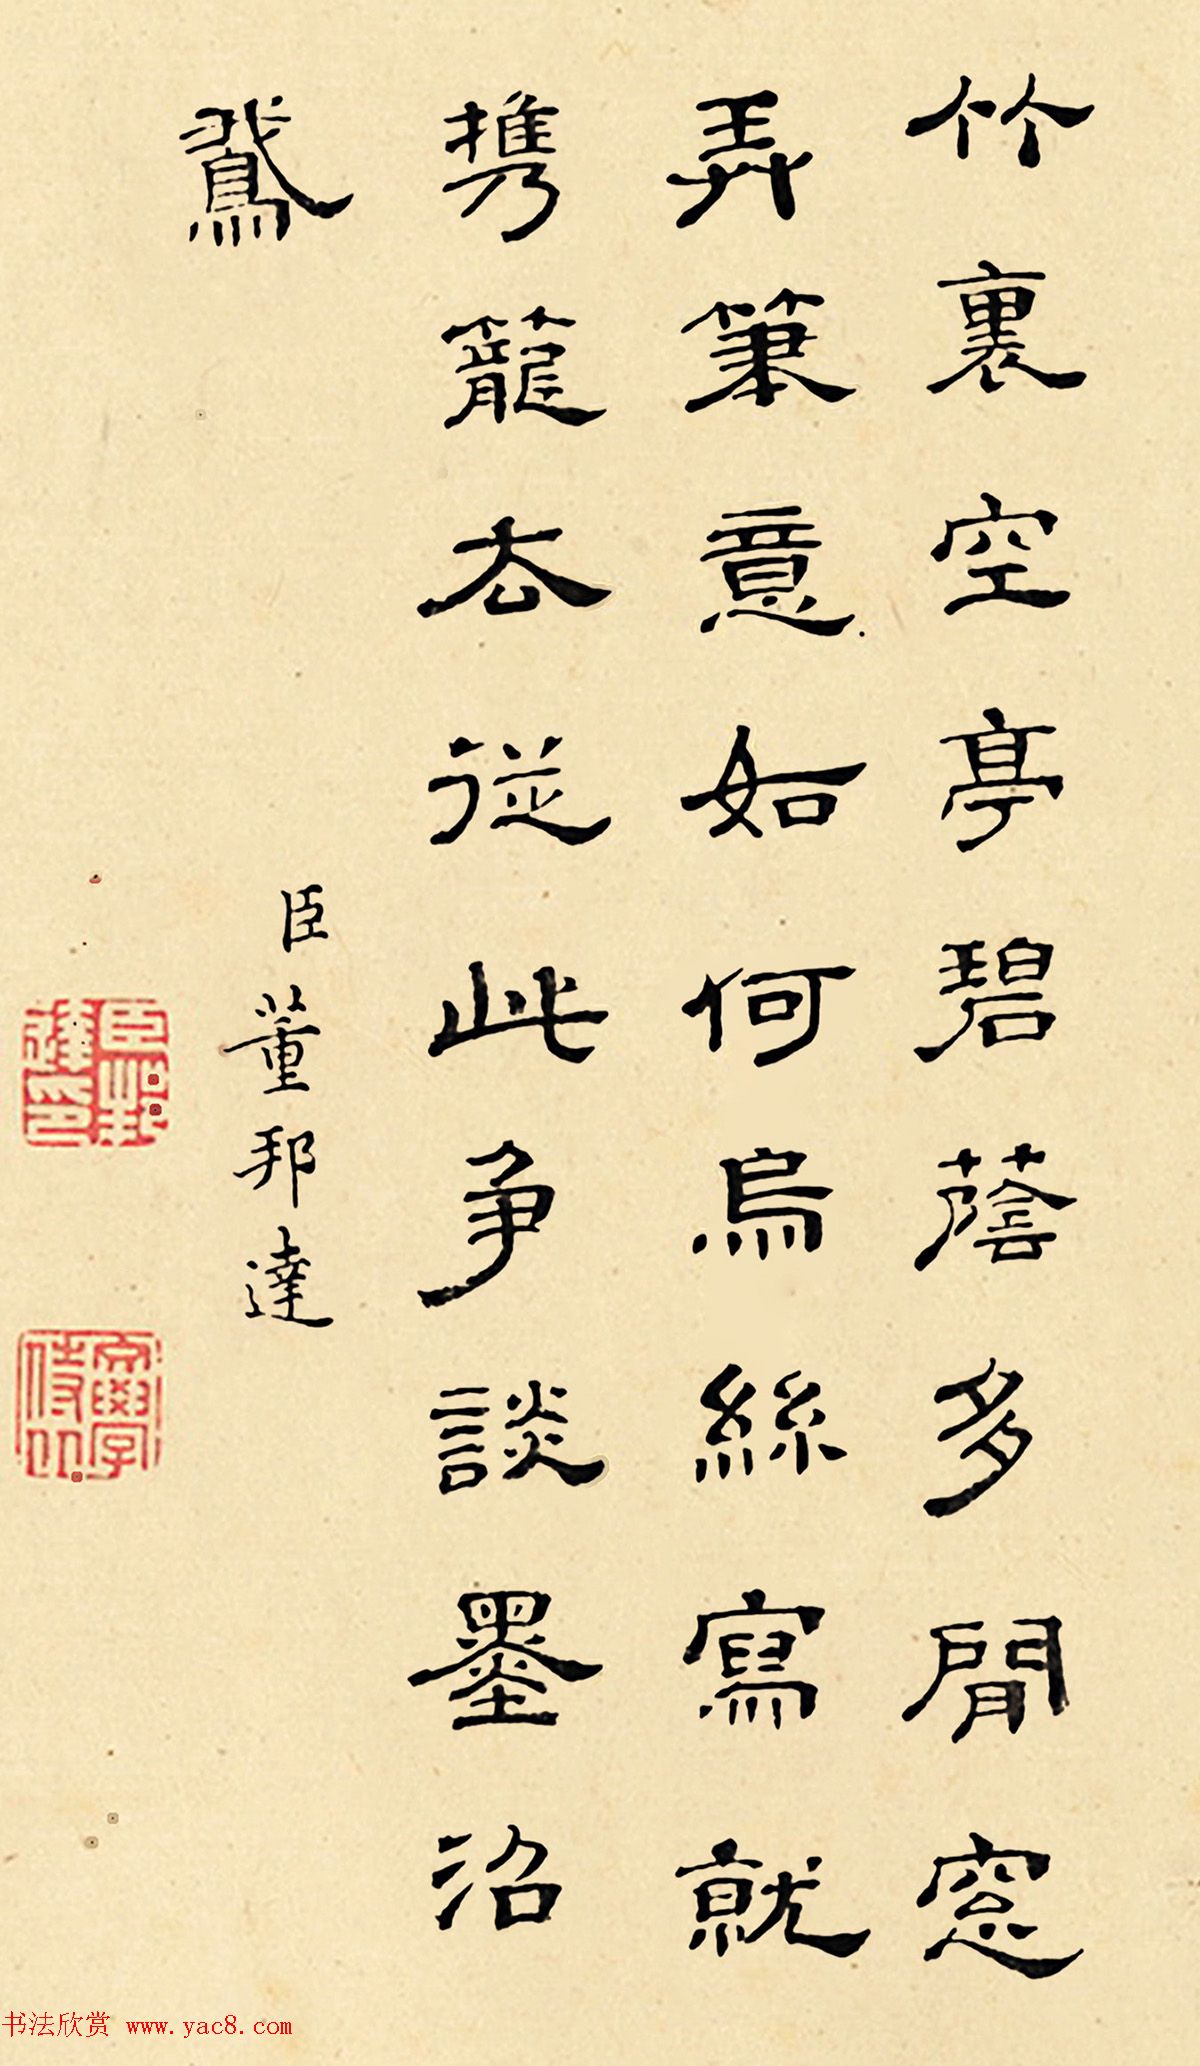 竹裏空亭碧蔭多閒窓
弄筆意如何烏絲寫就
携籠去從此爭談墨沼
鵞
臣董邦達
臣邦達印
文學侍从
书法欣赏 www.yac8.com